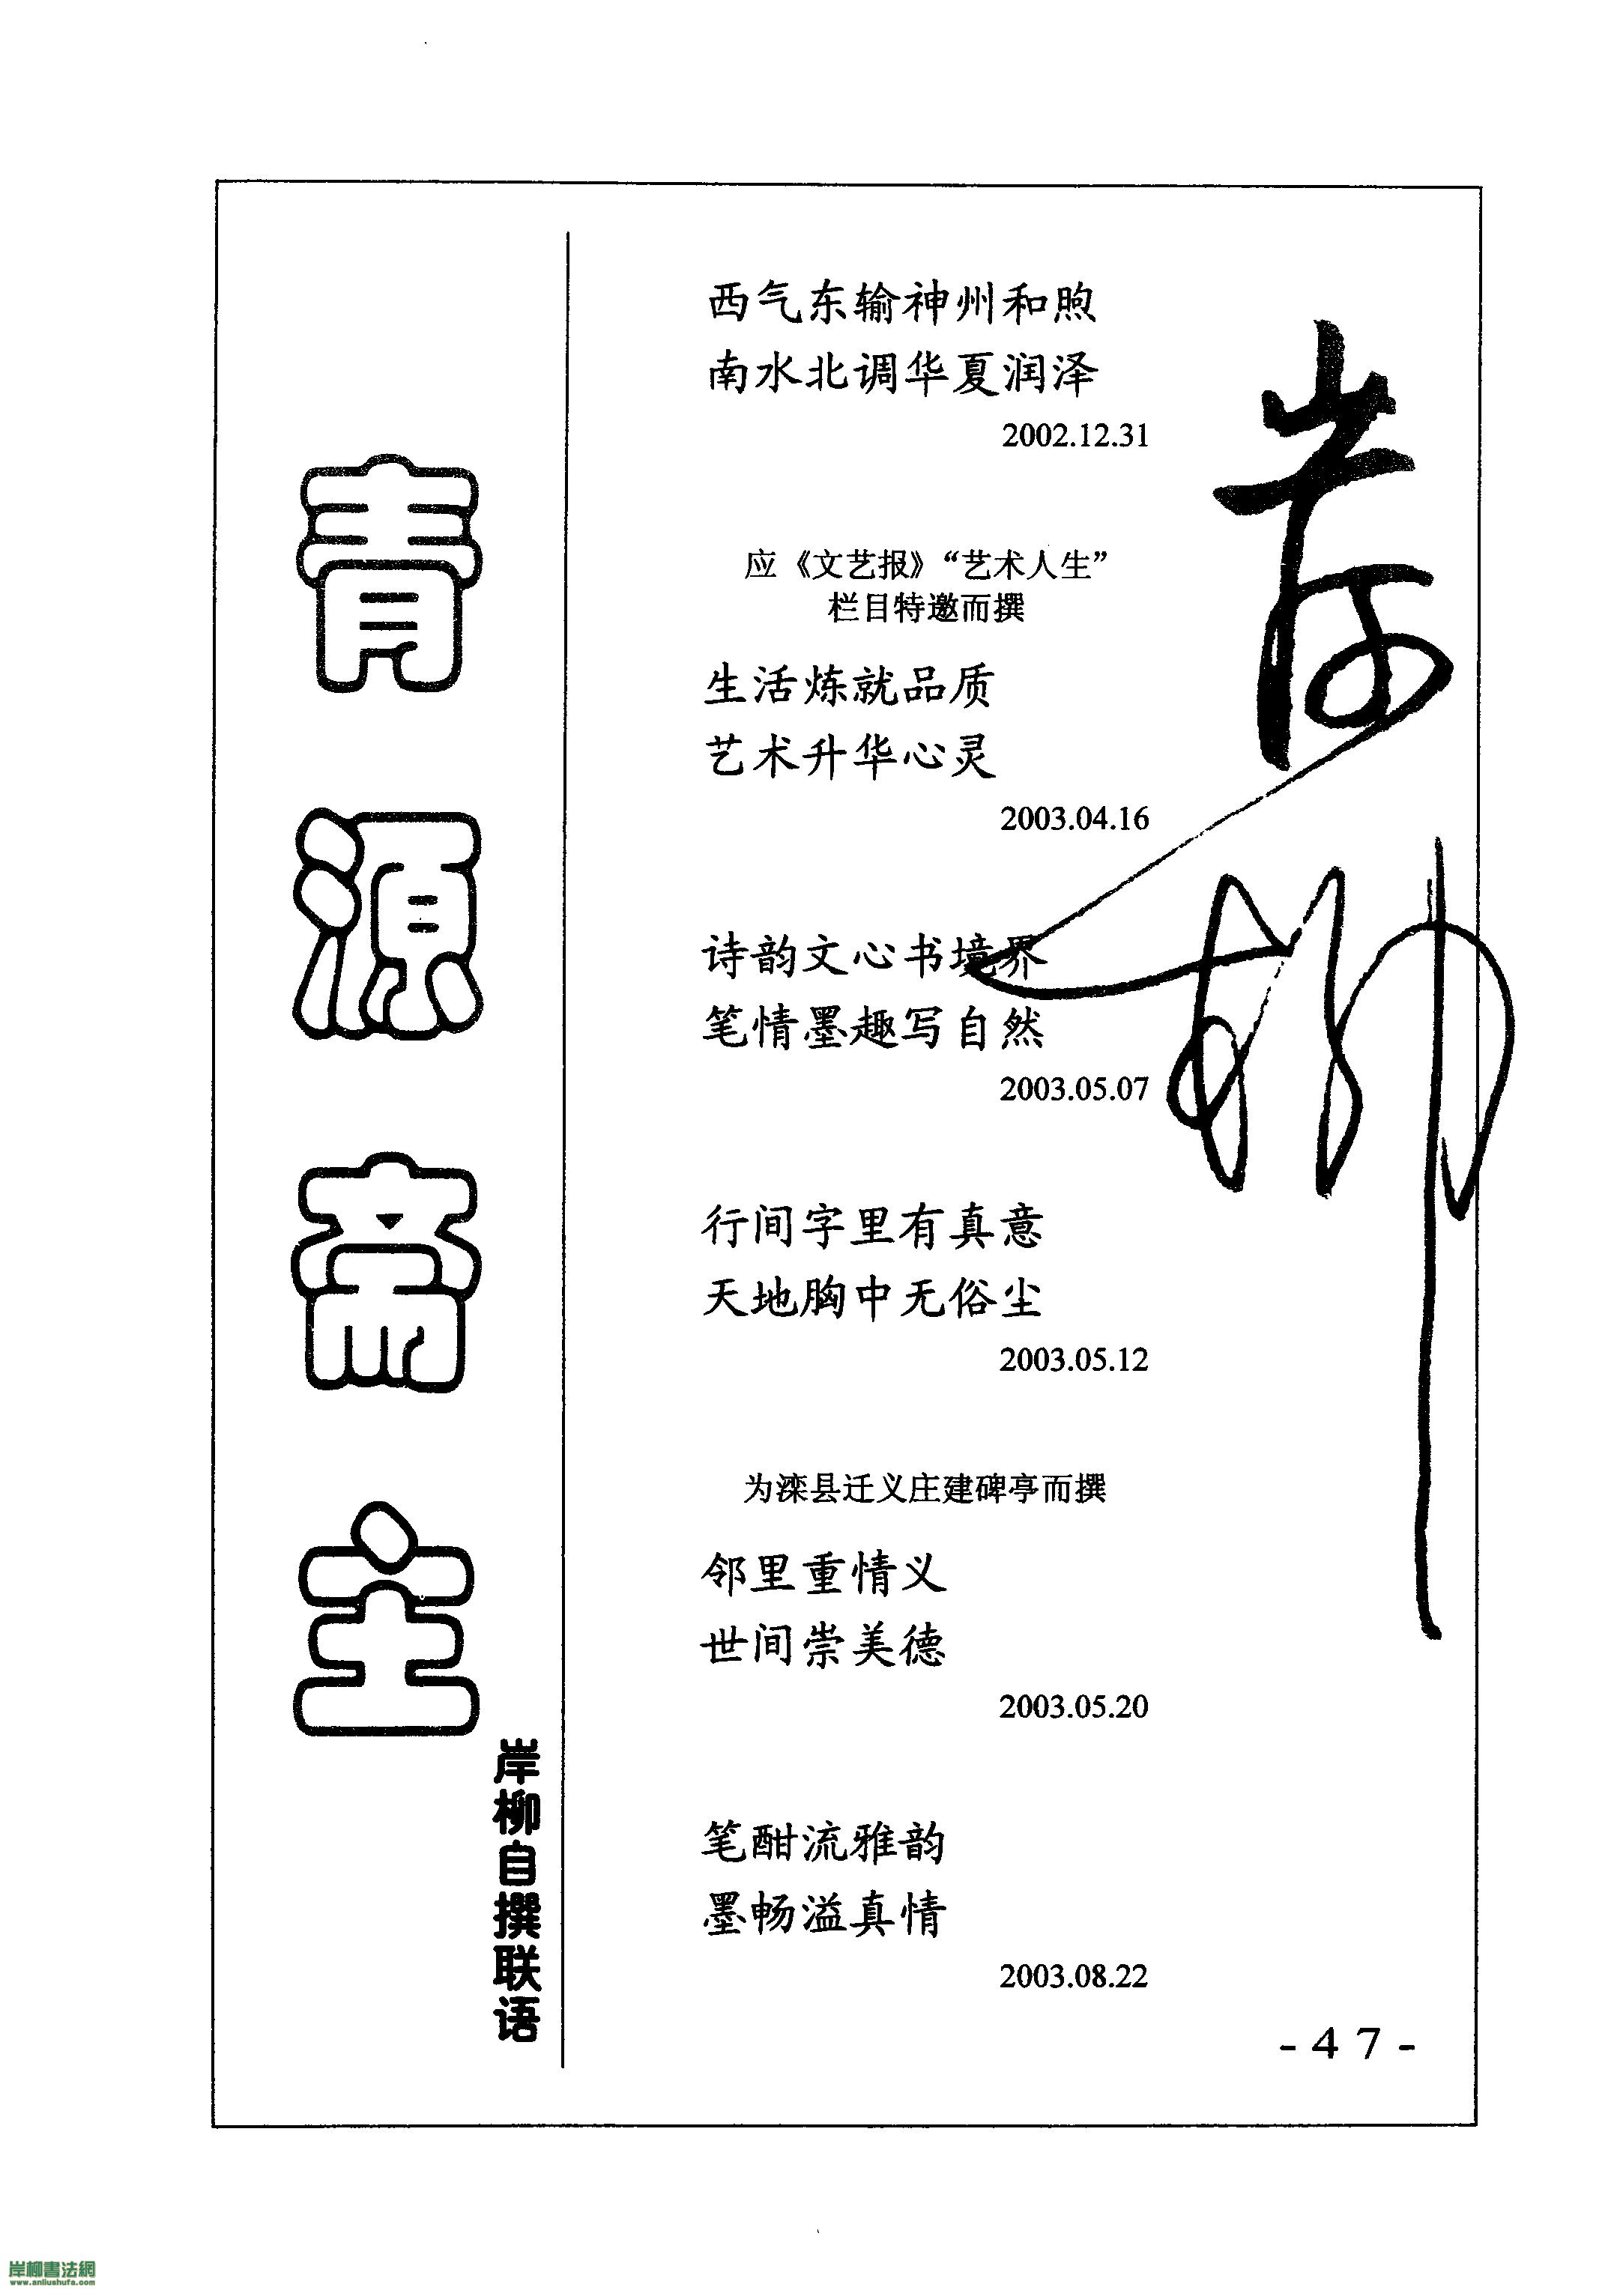 青源斋主
岸柳自撰联语
西气东输神州和煦
南水北调华夏润泽
2002.12.31
应《文艺报》“艺术人生”
栏目特邀而撰
生活炼就品质
艺术升华心灵
2003.04.16
诗韵文心书境界
笔情墨趣写自然
2003.05.07
行间字里有真意
天地胸中无俗尘
2003.05.12
为滦县迁义庄建碑亭而撰
邻里重情义
世间崇美德
2003.05.20
笔酣流雅韵
墨畅溢真情
2003.08.22
岸柳
-47-
岸柳書法網
www.anliushufa.com